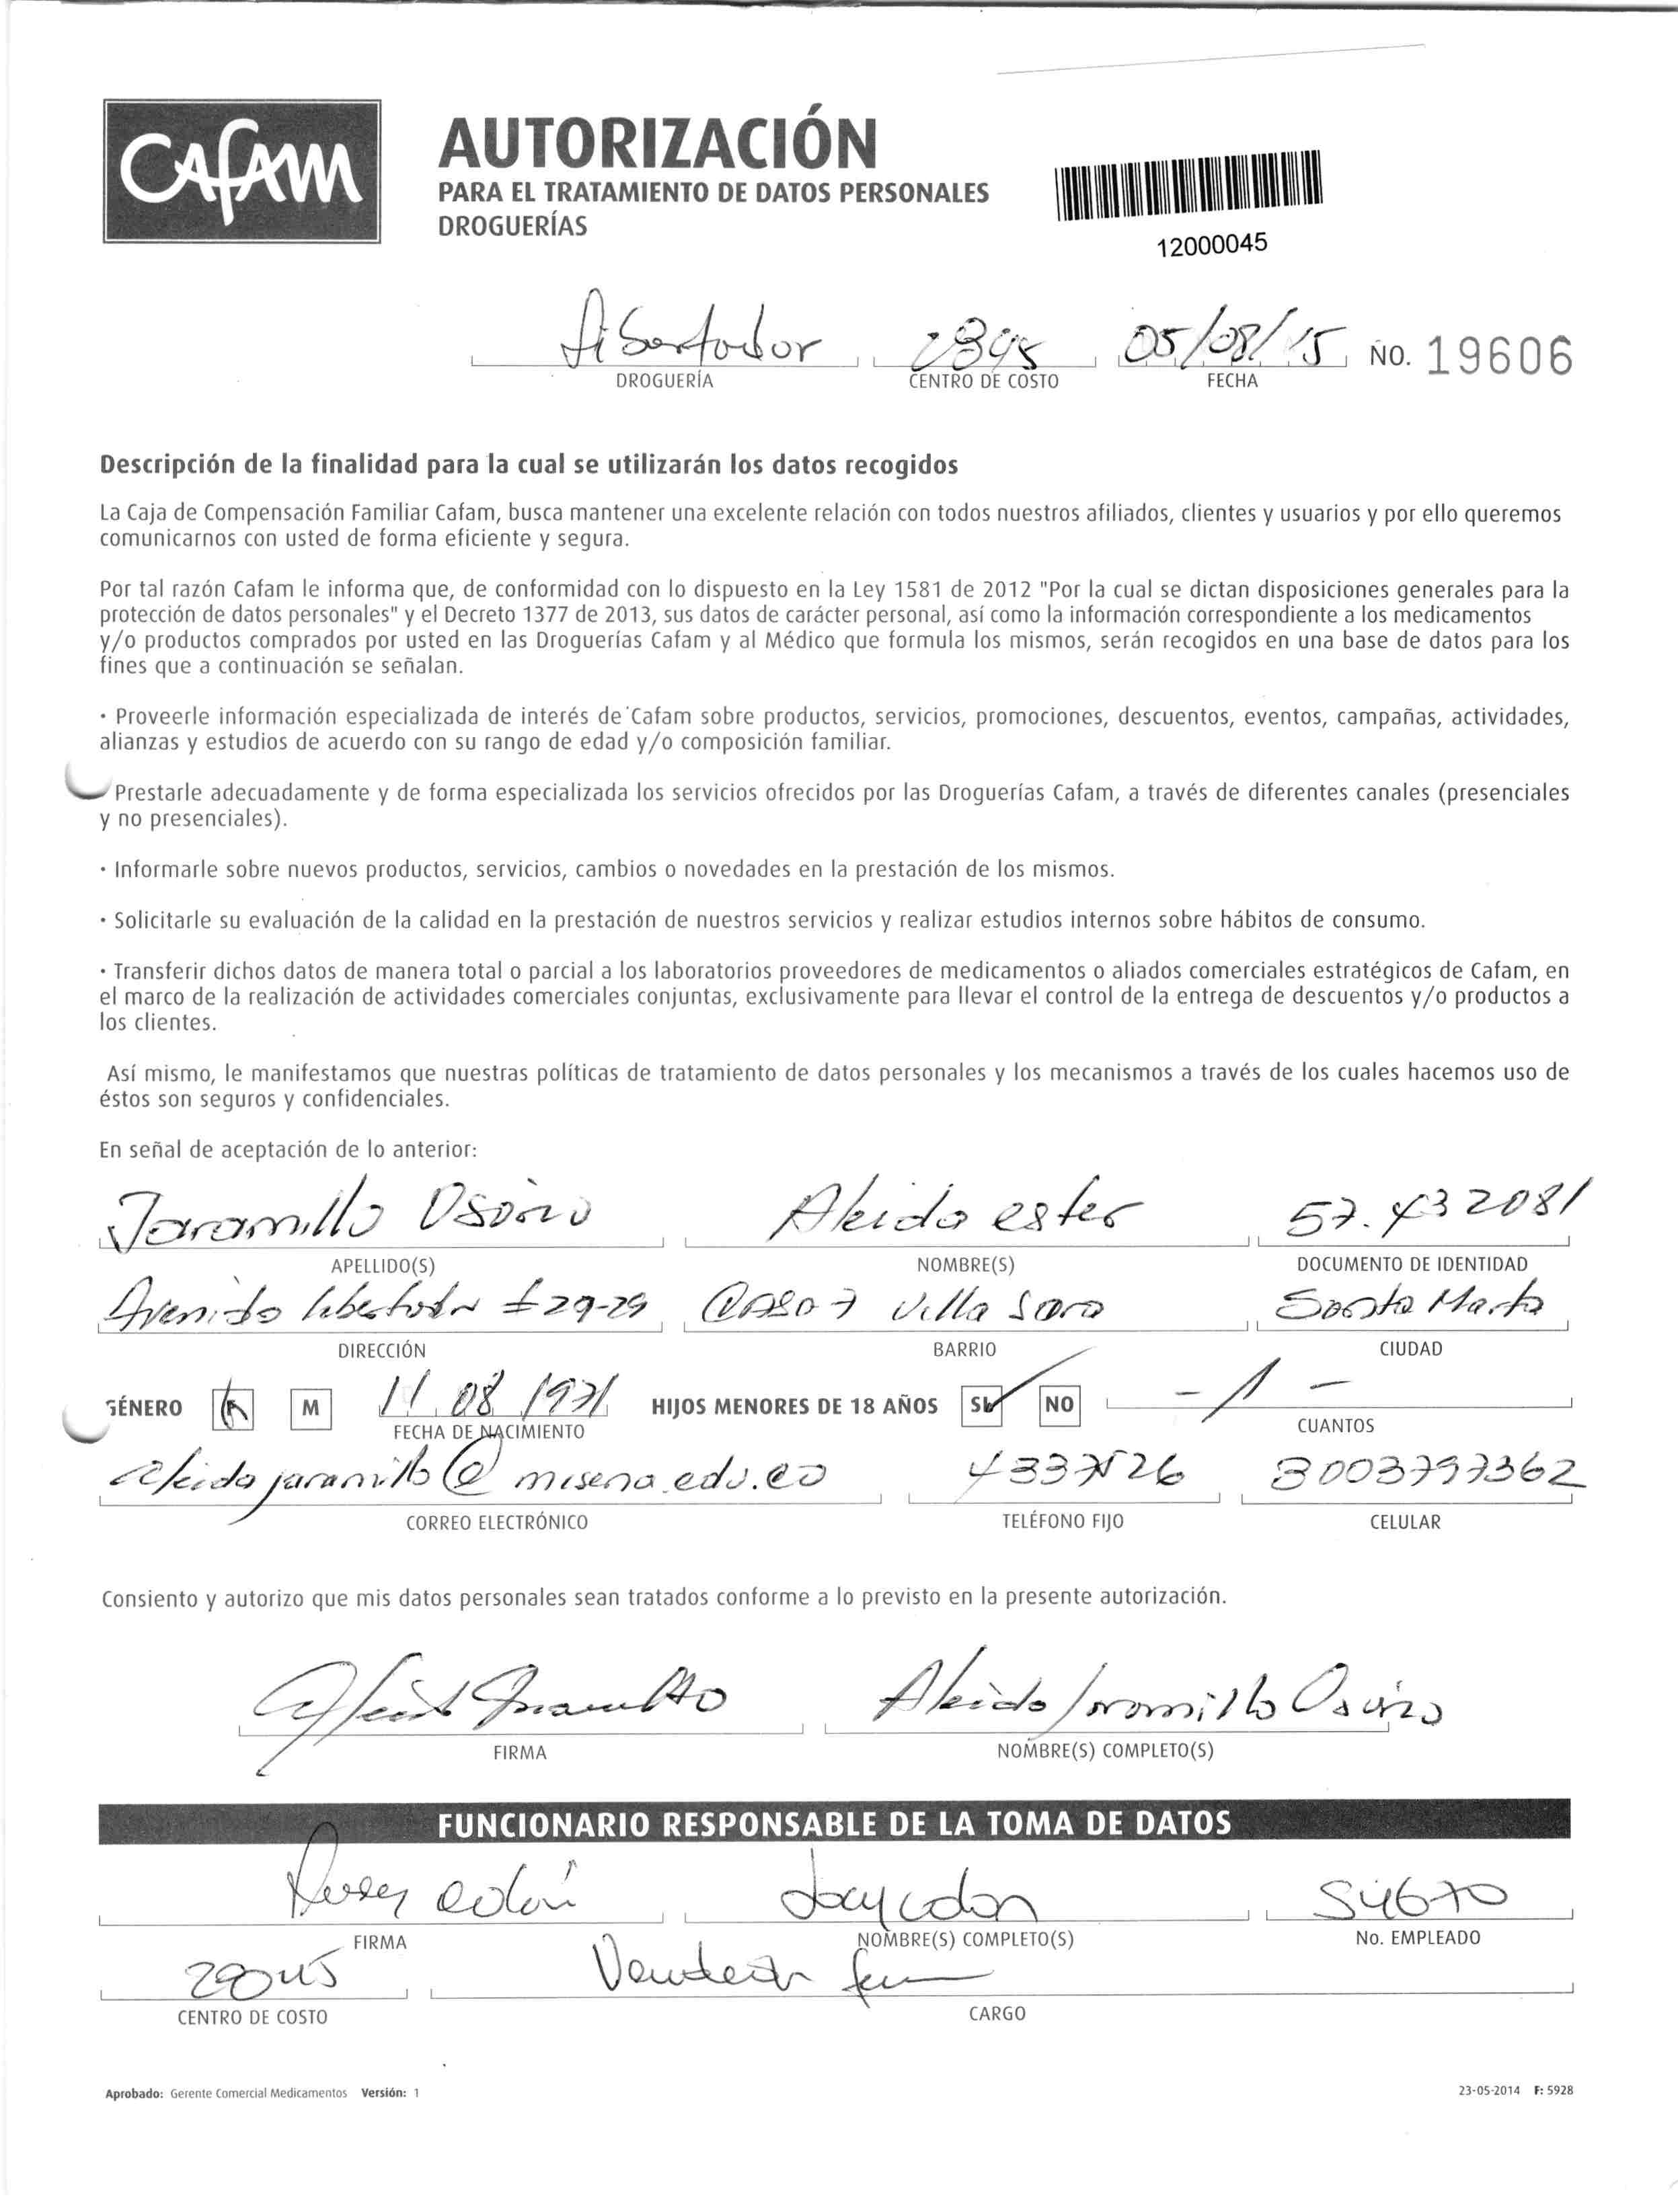 Cafam
AUTORIZACIÓN
PARA EL TRATAMIENTO DE DATOS PERSONALES
DROGUERÍAS
12000045
Libertador 05/08/15 NO. 19606
DROGUERÍA CENTRO DE COSTO FECHA
Descripción de la finalidad para la cual se utilizarán los datos recogidos
La Caja de Compensación Familiar Cafam, busca mantener una excelente relación con todos nuestros afiliados, clientes y usuarios y por ello queremos
comunicarnos con usted de forma eficiente y segura.
Por tal razón Cafam le informa que, de conformidad con lo dispuesto en la Ley 1581 de 2012 "Por la cual se dictan disposiciones generales para la
protección de datos personales" y el Decreto 1377 de 2013, sus datos de carácter personal, así como la información correspondiente a los medicamentos
y/o productos comprados por usted en las Droguerías Cafam y al Médico que formula los mismos, serán recogidos en una base de datos para los
fines que a continuación se señalan.
· Proveerle información especializada de interés de Cafam sobre productos, servicios, promociones, descuentos, eventos, campañas, actividades,
alianzas y estudios de acuerdo con su rango de edad y/o composición familiar.
Prestarle adecuadamente y de forma especializada los servicios ofrecidos por las Droguerías Cafam, a través de diferentes canales (presenciales
y no presenciales).
· Informarle sobre nuevos productos, servicios, cambios o novedades en la prestación de los mismos.
· Solicitarle su evaluación de la calidad en la prestación de nuestros servicios y realizar estudios internos sobre hábitos de consumo.
· Transferir dichos datos de manera total o parcial a los laboratorios proveedores de medicamentos o aliados comerciales estratégicos de Cafam, en
el marco de la realización de actividades comerciales conjuntas, exclusivamente para llevar el control de la entrega de descuentos y/o productos a
los clientes.
Así mismo, le manifestamos que nuestras políticas de tratamiento de datos personales y los mecanismos a través de los cuales hacemos uso de
éstos son seguros y confidenciales.
En señal de aceptación de lo anterior:
Jaramillo Osorio Aleida ester 57.432081
APELLIDO(S) NOMBRE(S) DOCUMENTO DE IDENTIDAD
Avenida libertador # 29-29 Casa 7 Villa Sara Santa Marta
DIRECCIÓN BARRIO CIUDAD
GÉNERO F M 11 08 1971 HIJOS MENORES DE 18 AÑOS SI NO - 1 -
FECHA DE NACIMIENTO CUANTOS
aleidajaramillo@misena.edu.co 4337526 3003797362
CORREO ELECTRÓNICO TELÉFONO FIJO CELULAR
Consiento y autorizo que mis datos personales sean tratados conforme a lo previsto en la presente autorización.
Aleida Jaramillo Aleida Jaramillo Osorio
FIRMA NOMBRE(S) COMPLETO(S)
FUNCIONARIO RESPONSABLE DE LA TOMA DE DATOS
colon colon 54670
FIRMA NOMBRE(S) COMPLETO(S) No. EMPLEADO
Vendedor
CENTRO DE COSTO CARGO
Aprobado: Gerente Comercial Medicamentos Versión: 1 23-05-2014 F: 5928